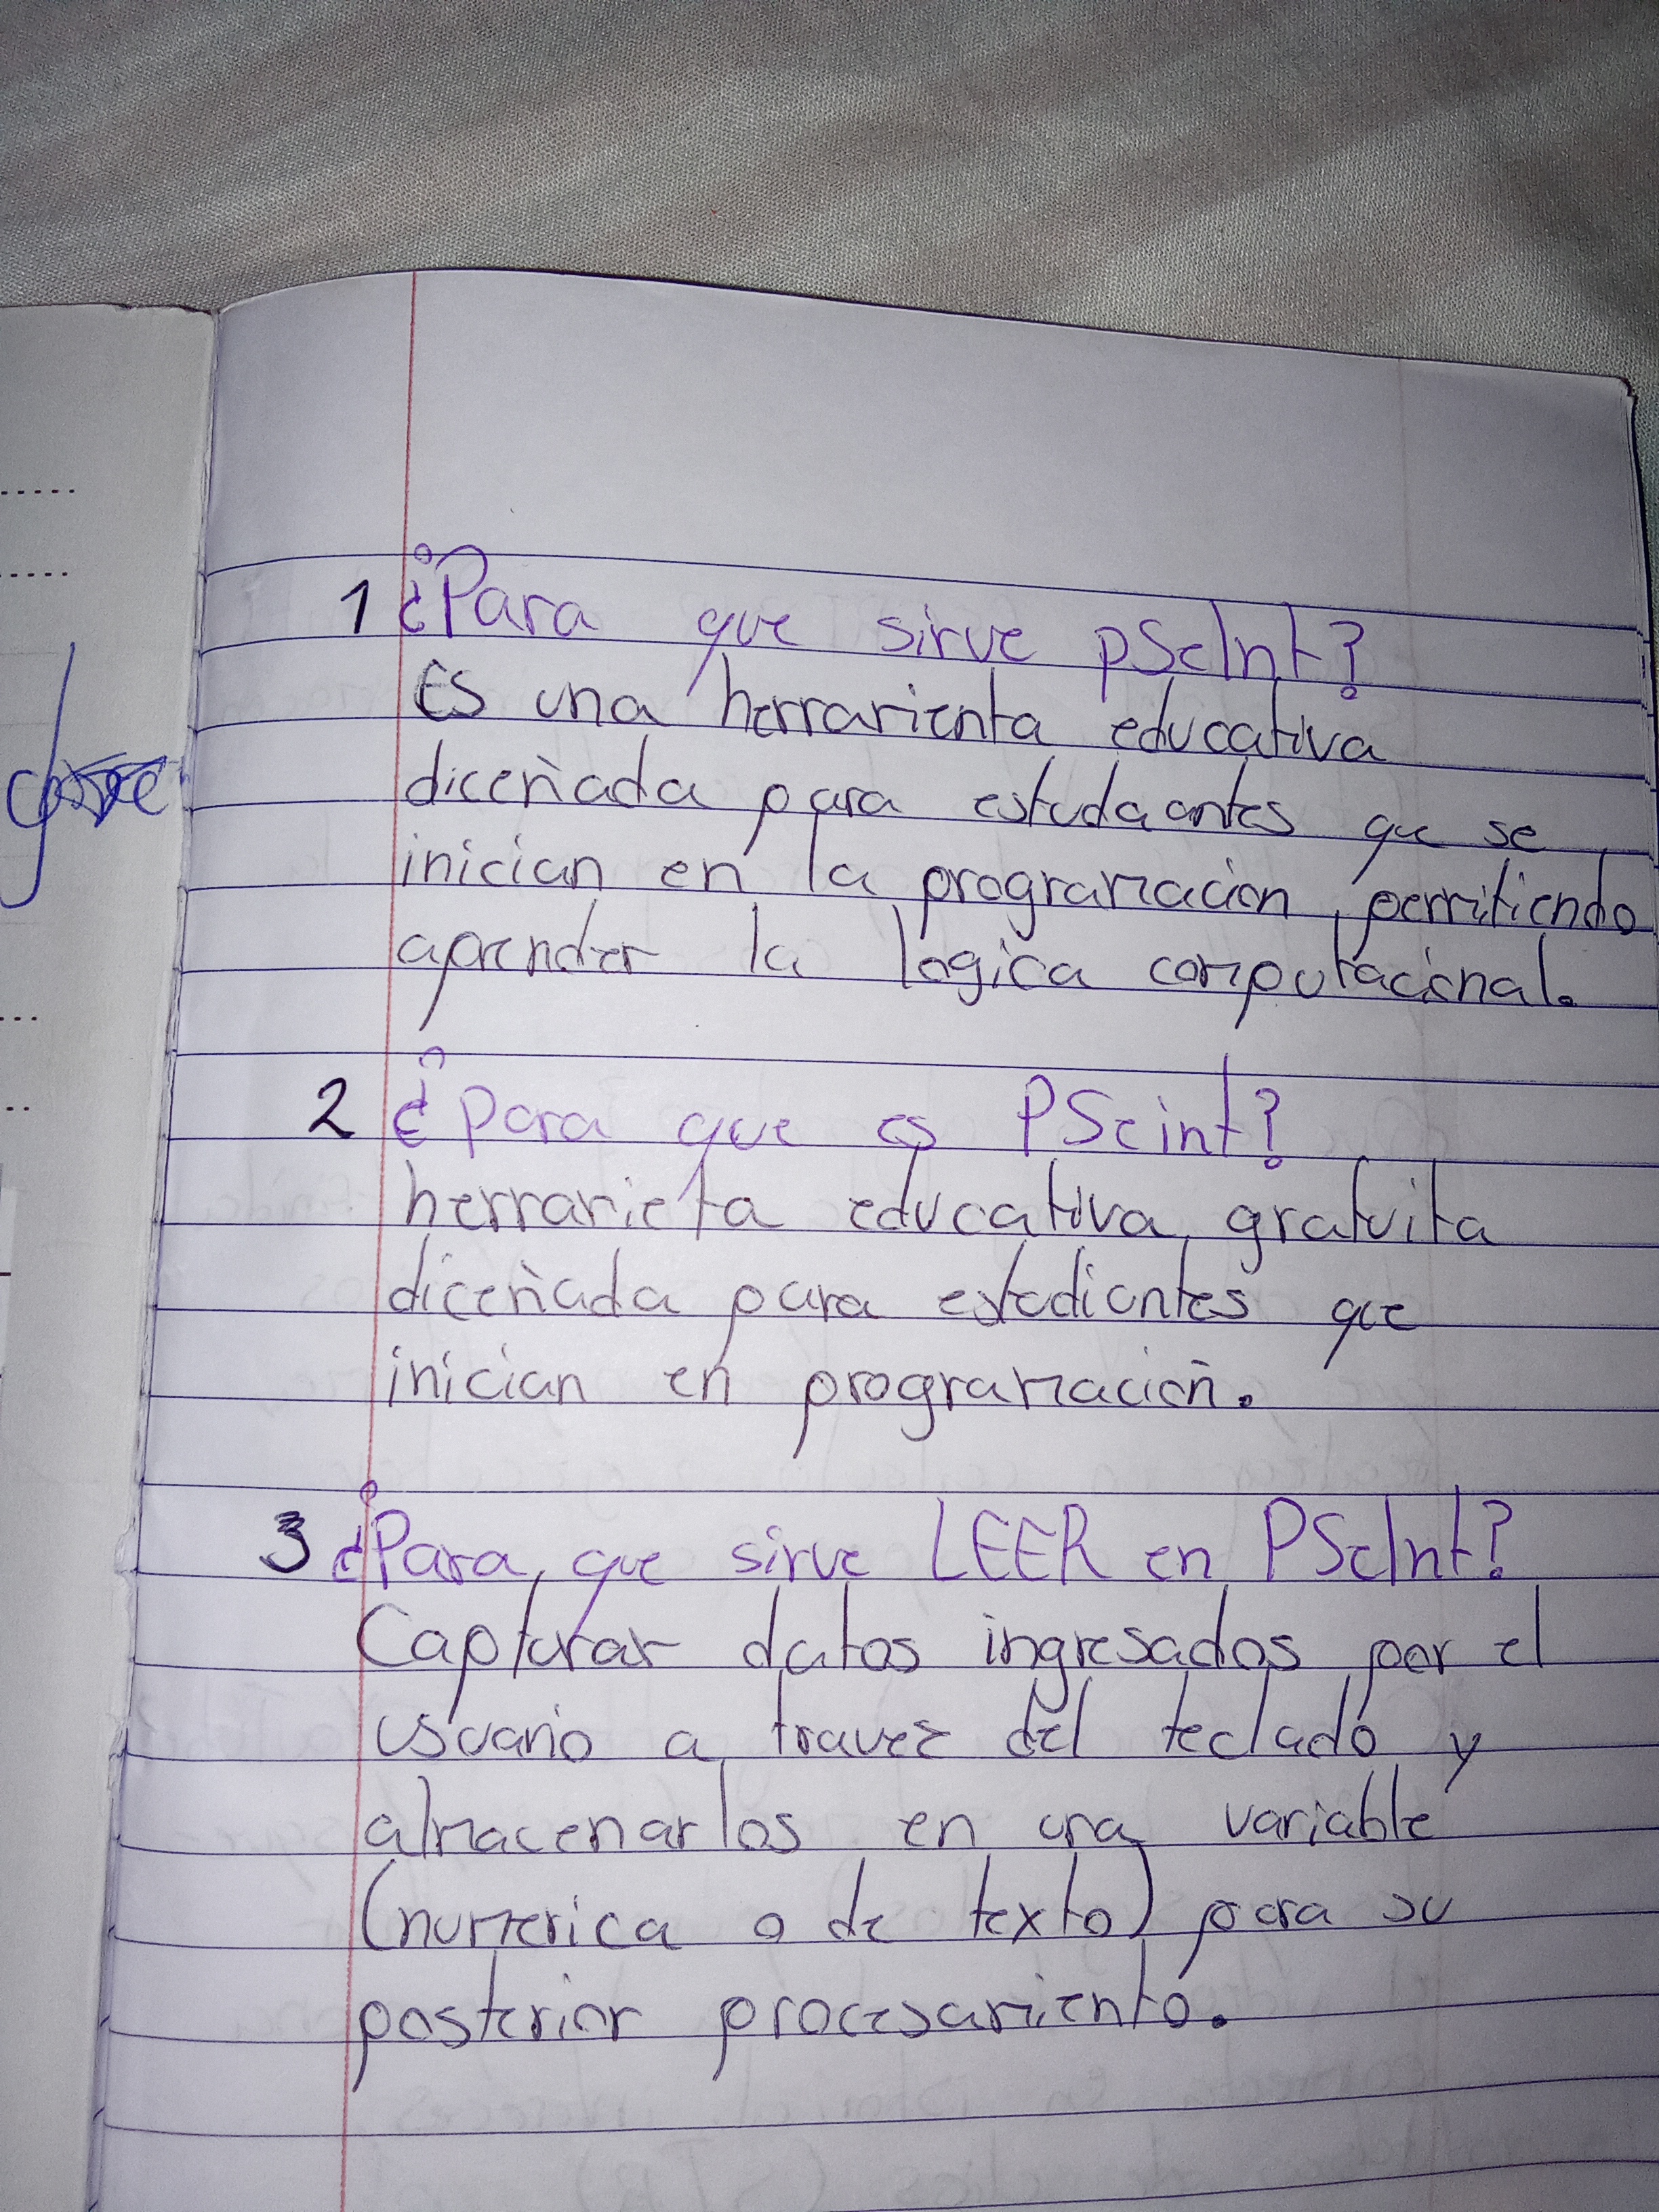 1 ¿Para que sirve pScInt?
Es una herramienta educativa
diceñada para estudaantes que se
inician en la programación, permitiendo
aprender la lógica computacional.
2 ¿Para que es PScint?
herramieta educativa gratuita
diceñada para estudiantes que
inician en programación.
3 ¿Para que sirve LEER en PScInt?
Capturar datos ingresados por el
usuario a travez del teclado y
almacenarlos en una variable
(numerica o de texto) para su
posterior procesamiento.